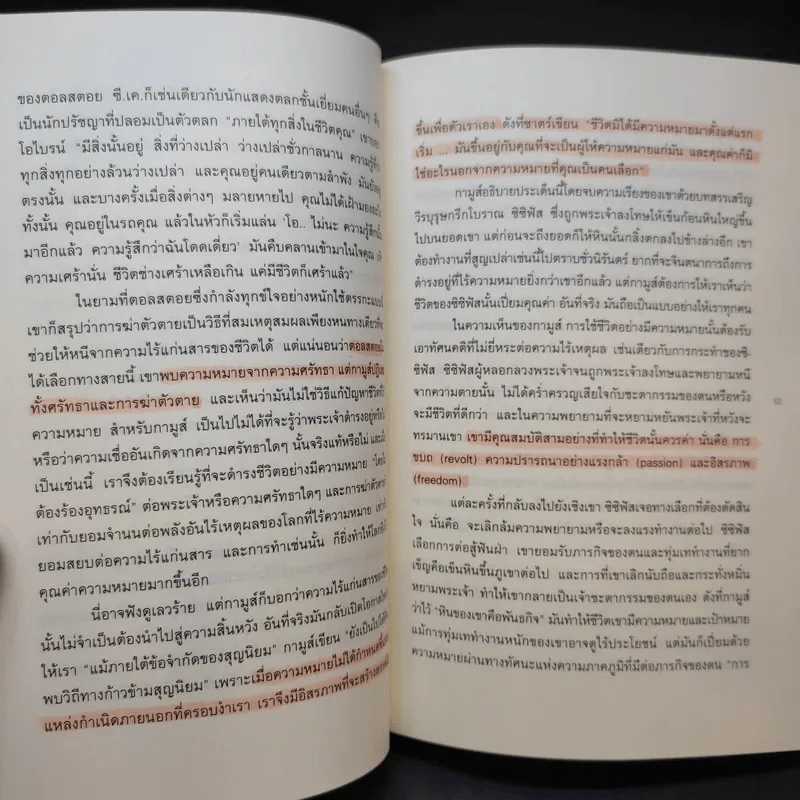 ของตอลสตอย ซี.เค.ก็เช่นเดียวกับนักแสดงตลกชั้นเยี่ยมคนอื่นๆ
เป็นนักปรัชญาที่ปลอมเป็นตัวตลก "ภายใต้ทุกสิ่งในชีวิตคุณ"
โอไบรน์ "มีสิ่งนั้นอยู่ สิ่งที่ว่างเปล่า ว่างเปล่าชั่วกาลนาน
ทุกสิ่งทุกอย่างล้วนว่างเปล่า และคุณอยู่คนเดียวตามลำพัง
ตรงนั้น และบางครั้งเมื่อสิ่งต่างๆ มลายหายไป คุณไม่ได้เฝ้ามอง
ทั้งนั้น คุณอยู่ในรถคุณ แล้วในหัวก็เริ่มแล่น 'โอ.. ไม่นะ ความรู้สึก
มาอีกแล้ว ความรู้สึกว่าฉันโดดเดี่ยว' มันคืบคลานเข้ามาในใจคุณ
ความเศร้านั่น ชีวิตช่างเศร้าเหลือเกิน แค่มีชีวิตก็เศร้าแล้ว"
ในยามที่ตอลสตอยซึ่งกำลังทุกข์ใจอย่างหนักใช้ตรรกะ
เขาก็สรุปว่าการฆ่าตัวตายเป็นวิธีที่สมเหตุสมผลเพียงหนทางเดียวที่จะ
ช่วยให้หนีจากความไร้แก่นสารของชีวิตได้ แต่แน่นอนว่าตอลสตอย
ได้เลือกทางสายนี้ เขาพบความหมายจากความศรัทธา แต่กามูส์
ทั้งศรัทธาและการฆ่าตัวตาย และเห็นว่ามันไม่ใช่วิธีแก้ปัญหาชีวิต
ความหมาย สำหรับกามูส์ เป็นไปไม่ได้ที่จะรู้ว่าพระเจ้าดำรงอยู่หรือ
หรือว่าความเชื่ออันเกิดจากความศรัทธาใดๆ นั้นจริงแท้หรือไม่
เป็นเช่นนี้ เราจึงต้องเรียนรู้ที่จะดำรงชีวิตอย่างมีความหมาย
ต้องร้องอุทธรณ์" ต่อพระเจ้าหรือความศรัทธาใดๆ และการฆ่าตัวตาย
เท่ากับยอมจำนนต่อพลังอันไร้เหตุผลของโลกที่ไร้ความหมาย
ยอมสยบต่อความไร้แก่นสาร และการทำเช่นนั้น ก็ยิ่งทำให้โลก
คุณค่าความหมายมากขึ้นอีก
นี่อาจฟังดูเลวร้าย แต่กามูส์ก็บอกว่าความไร้แก่นสารของ
นั้นไม่จำเป็นต้องนำไปสู่ความสิ้นหวัง อันที่จริงมันกลับเปิดโอกาส
ให้เรา "แม้ภายใต้ข้อจำกัดของสุญนิยม" กามูส์เขียน "ยังเป็นไปได้
พบวิถีทางก้าวข้ามสุญนิยม" เพราะเมื่อความหมายไม่ได้กำหนด
แหล่งกำเนิดภายนอกที่ครอบงำเรา เราจึงมีอิสรภาพที่จะสร้าง
ขึ้นเพื่อตัวเราเอง ดังที่ซาตร์เขียน "ชีวิตมิได้มีความหมายมาตั้งแต่แรก
เริ่ม ... มันขึ้นอยู่กับคุณที่จะเป็นผู้ให้ความหมายแก่มัน และคุณค่าก็มิ
ใช่อะไรนอกจากความหมายที่คุณเป็นคนเลือก"
กามูส์อธิบายประเด็นนี้โดยจบความเรียงของเขาด้วยบทสรรเสริญ
วีรบุรุษกรีกโบราณ ซิซิฟัส ซึ่งถูกพระเจ้าลงโทษให้เข็นก้อนหินใหญ่ขึ้น
ไปบนยอดเขา แต่ก่อนจะถึงยอดก็ให้หินนั้นกลิ้งตกลงไปข้างล่างอีก เขา
ต้องทำงานที่สูญเปล่าเช่นนี้ไปตราบชั่วนิรันดร์ ยากที่จะจินตนาการถึงการ
ดำรงอยู่ที่ไร้ความหมายยิ่งกว่าเขาอีกแล้ว แต่กามูส์ต้องการให้เราเห็นว่า
ชีวิตของซิซิฟัสนั้นเปี่ยมคุณค่า อันที่จริง มันถือเป็นแบบอย่างให้เราทุกคน
ในความเห็นของกามูส์ การใช้ชีวิตอย่างมีความหมายนั้นต้องรับ
เอาทัศนคติที่ไม่ยี่หระต่อความไร้เหตุผล เช่นเดียวกับการกระทำของซิ-
ซิฟัส ซิซิฟัสผู้หลอกลวงพระเจ้าจนถูกพระเจ้าลงโทษและพยายามหนี
จากความตายนั้น ไม่ได้คร่ำครวญเสียใจกับชะตากรรมของตนหรือหวัง
จะมีชีวิตที่ดีกว่า และในความพยายามที่จะหยามหยันพระเจ้าที่หวังจะ
ทรมานเขา เขามีคุณสมบัติสามอย่างที่ทำให้ชีวิตนั้นควรค่า นั่นคือ การ
ขบถ (revolt) ความปรารถนาอย่างแรงกล้า (passion) และอิสรภาพ
(freedom)
แต่ละครั้งที่กลับลงไปยังเชิงเขา ซิซิฟัสเจอทางเลือกที่ต้องตัดสิน
ใจ นั่นคือ จะเลิกล้มความพยายามหรือจะลงแรงทำงานต่อไป ซิซิฟัส
เลือกการต่อสู้ฟันฝ่า เขายอมรับภารกิจของตนและทุ่มเททำงานที่ยาก
เข็ญคือเข็นหินขึ้นภูเขาต่อไป และการที่เขาเลิกนับถือและกระทั่งหมิ่น
หยามพระเจ้า ทำให้เขากลายเป็นเจ้าชะตากรรมของตนเอง ดังที่กามูส์
ว่าไว้ "หินของเขาคือพันธกิจ" มันทำให้ชีวิตเขามีความหมายและเป้าหมาย
แม้การทุ่มเททำงานหนักของเขาอาจดูไร้ประโยชน์ แต่มันก็เปี่ยมด้วย
ความหมายผ่านทางทัศนะแห่งความภาคภูมิที่มีต่อภารกิจของตน "การ